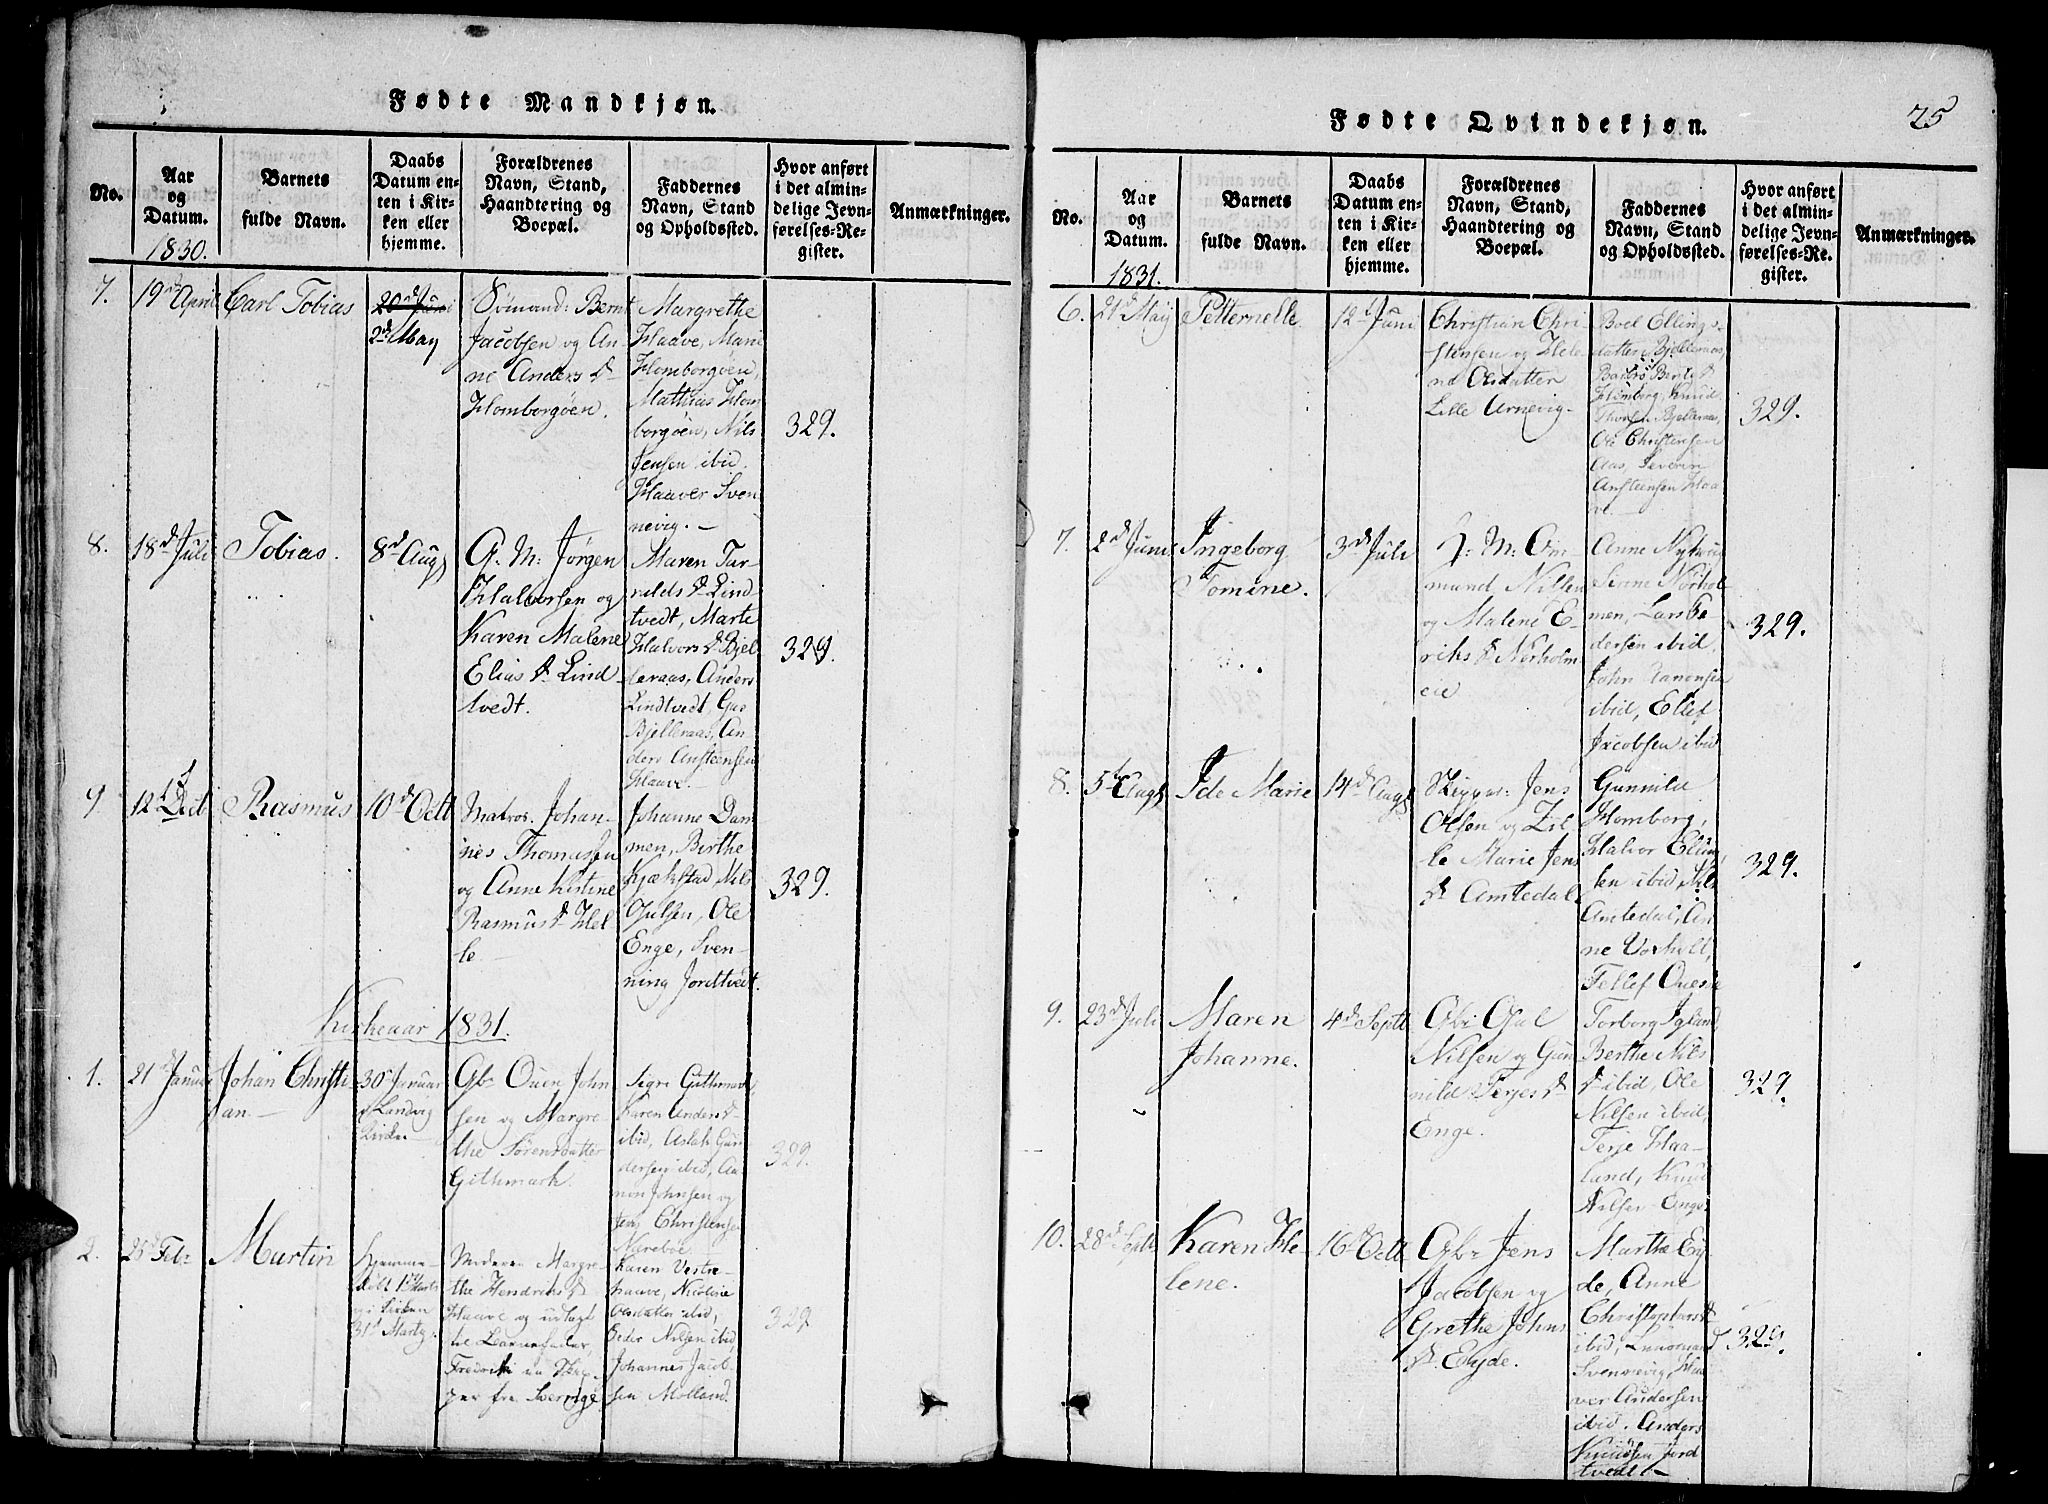 Fødte Mandkjøn.
No.
Aar
og
Datum.
1830.
Barnets
fulde Navn.
Daabs
Datum en-
ten i Kir-
ken eller
hjemme.
Forældrenes
Navn, Stand,
Haandtering og
Boepæl.
Faddernes
Navn, Stand
og Opholdssted.
Hvor anført
i det almin-
delige Jevn-
førelses-Re-
gister.
Anmærkninger.
7.
19d April
Carl Tobias
20d Juni
2d May
Sømand: Bernt
Jacobsen og An-
ne Anders D
Homborgøen.
Margrethe
Haave, Marie
Homborgøen,
Mathias Hom
borgøen, Nils
Jensen ibid.
Haaver Sven
nevig. -
329.
8.
18d Juli
Tobias.
8d Augt
G. M: Jørgen
Halvorsen og
Karen Malene
Elias D Lind
tvedt.
Maren Tar-
alds D Lind
tvedt, Marte
Halvors D Bjel
leraas, Anders
Lindtvedt,
Bjelleraas, An
ders Ansteensen
Haave. -
329.
9.
12d
Rasmus
10d Octb
Matros. Johan-
nes Thomassen
og Anne Kistine
Rasmus D Hel
le
Johanne Dam
men, Birthe
Kjækstad, Nils
Gulsen, Ole
Enge, Sven-
ning Jordtvedt.
329.
Kirkeaar 1831.
1.
21d Januar
Johan Christi
an. -
30d Januar
i Landvig
Kirke. -
Gbr Ouen John
sen og Margre
the Sørensdatter
Githmark.
Sigri Githmark,
Karen Anders D
ibid, Aslak Gun
dersen ibid, Aa
non Johnsen og
Jens Christensen
Nareboe
329.
2.
25d Febr
Martin
Hjemme-
døbt 1ste Marts
og i Kirken
31d Marty.
Moderen Margre-
the Hendriks D
Haave og udlagt
til Barnefader,
Fredrik en Skip-
per fra Sverrige
Karen Vestre-
haave, Nicoline
Olsdatter ibid,
Peder Nilsen ibid,
Johannes Jacob-
sen Molland.
329
Fødte Qvindekjøn.
75
No.
Aar
og
Datum.
1831.
Barnets
fulde Navn.
Daabs
Datum en-
ten i Kir-
ken eller
hjemme.
Forældrenes
Navn, Stand,
Haandtering og
Boepæl.
Faddernes
Navn, Stand
og Opholdssted.
Hvor anført
i det almin-
delige Jevn-
førelses-Re-
gister.
Anmærkninger.
6.
21d May
Petternelle
12d Juni
Christian Chri-
stensen og Hele-
na Olsdatter
Lille Arnevig-
Boel Ellings-
datter Bjelleraas,
Barbro Bents D
Homborg, Knud
Thorsen Bjelleraas,
Ole Christensen
Aas, Severin
Ansteensen Haa
ve. -
329.
7.
2d Juni
Ingeborg
Tomine.
3d Juli
H: M: Om-
mund Nilsen
og Malene E-
riks D Nørholm
eie
Anne
Serine Nørhol
men, Lars Pe-
dersen ibid,
John Aanonsen
ibid, Ellef
Jacobsen ibid
329.
8.
5te Augt
Ide Marie
14d Augt
Skipper: Jens
Olsen og Zil
le Marie Jens
D Amtedal
Gunnild
Homborg,
Halvor Ellin
sen ibid, Nils
Amtedal, An
ne Vorhult,
Tellef
329.
9.
23d Juli
Maren
Johanne.
4d Septb
Gbr Gul
Nilsen og Gun
nild Terjes D
Enge.
Torborg Igland,
Berthe Nils
D ibid, Ole
Nilsen ibid,
Terje Haa-
land, Knud
Nilsen Enge.
329.
10.
28d Septb
Karen He-
lene.
16d Octb
Gbr Jens
Jacobsen og
Grethe Johns
D Eyde.
Marthe Ey
de, Anne
Christophers D
ibid, Gunvor
Svennevig, Haa
ver Andersen
ibid. Anders
Knudsen Jord
tvedt. -
329.